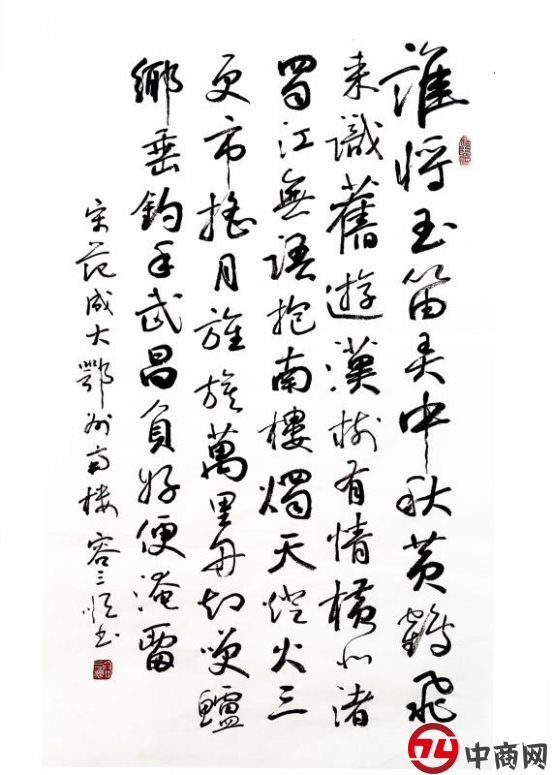 誰將玉笛弄中秋黃鶴飛
來識舊遊漢樹有情橫北渚
蜀江無語抱南樓燭天燈火三
更市搖月旌旗萬里舟却笑鱸
鄉垂釣手武昌魚好便淹留
宋范成大鄂州南樓 容三书
中商网